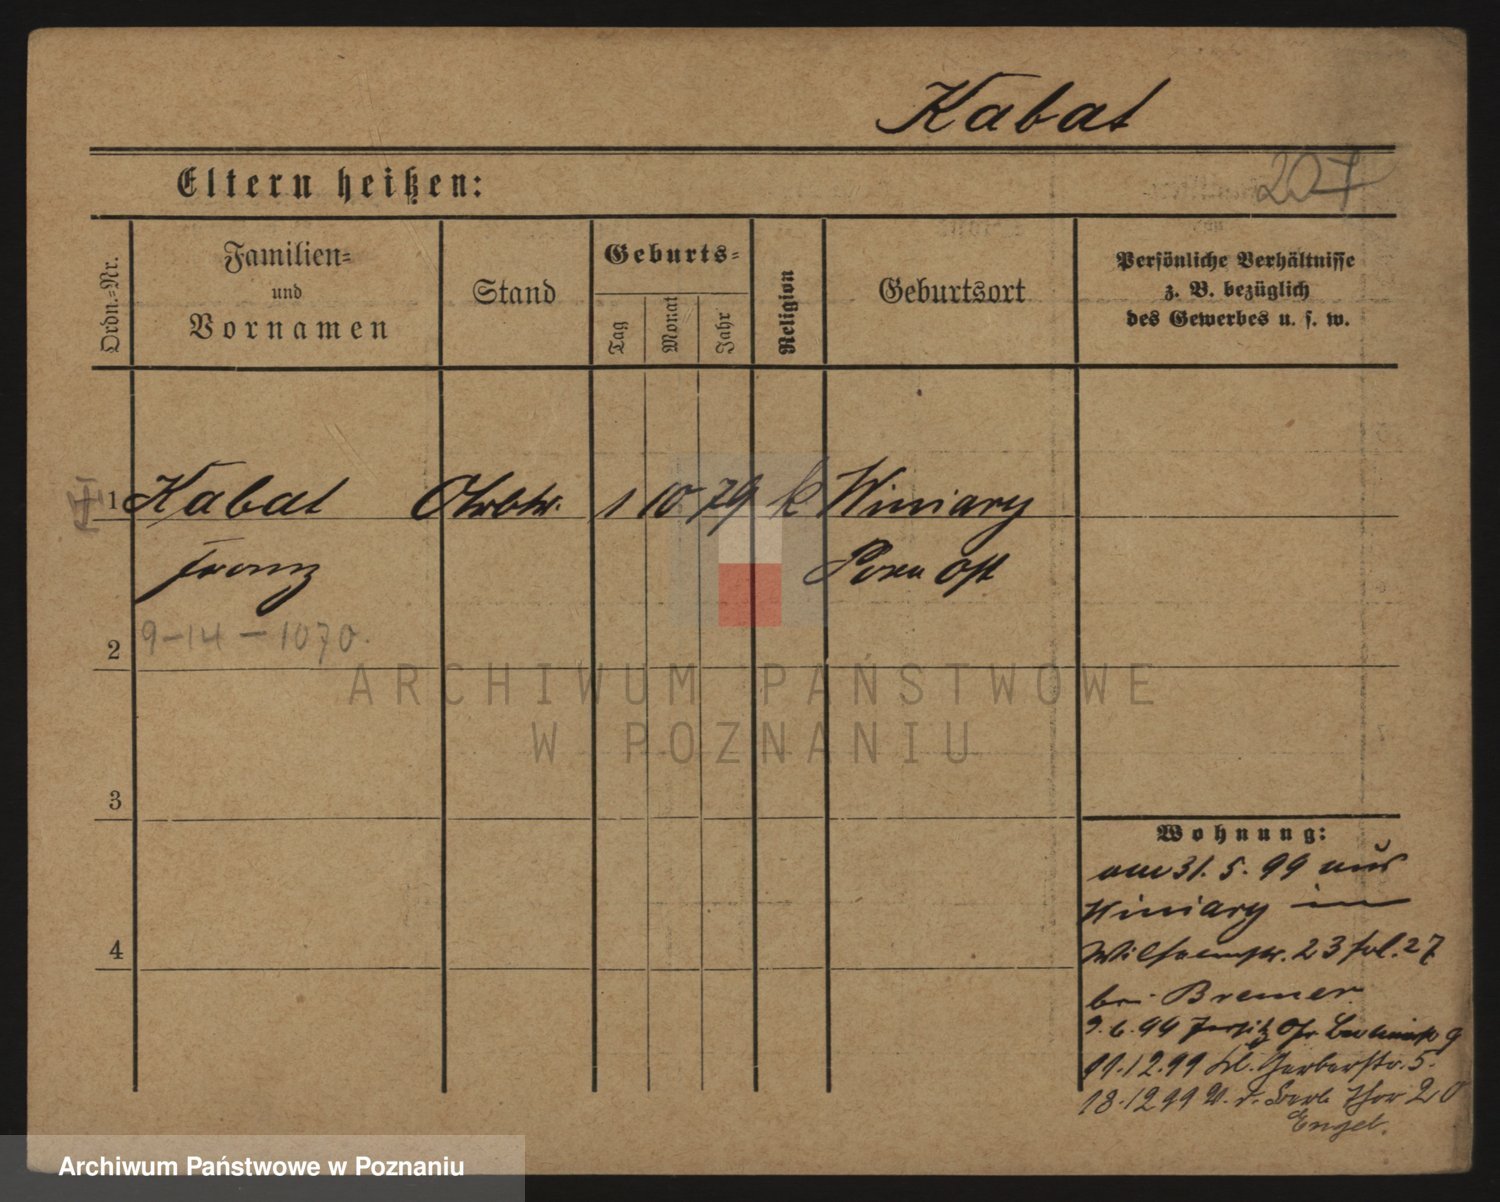 Kabat
Eltern heißen:
207
Ordn.=Nr.
Familien=
und
Vornamen
Stand
Geburts=
Tag
Monat
Jahr
Religion
Geburtsort
Persönliche Verhältnisse
z. B. bezüglich
des Gewerbes u. s. w.
1 Kabat 1 10 79 k Winiary
Franz Posen Ost
9-14-1070.
2
3
4
Wohnung:
am 31. 5. 99 aus
Winiary in
Wilhelmstr. 23 fol. 27
bei Bremer
9. 6. 99 Jersitz 9
11.12.99 kl. Gerberstr. 5.
18.12 99 V. d. Berl. Thor 20
Engel.
ARCHIWUM PAŃSTWOWE
W POZNANIU
Archiwum Państwowe w Poznaniu